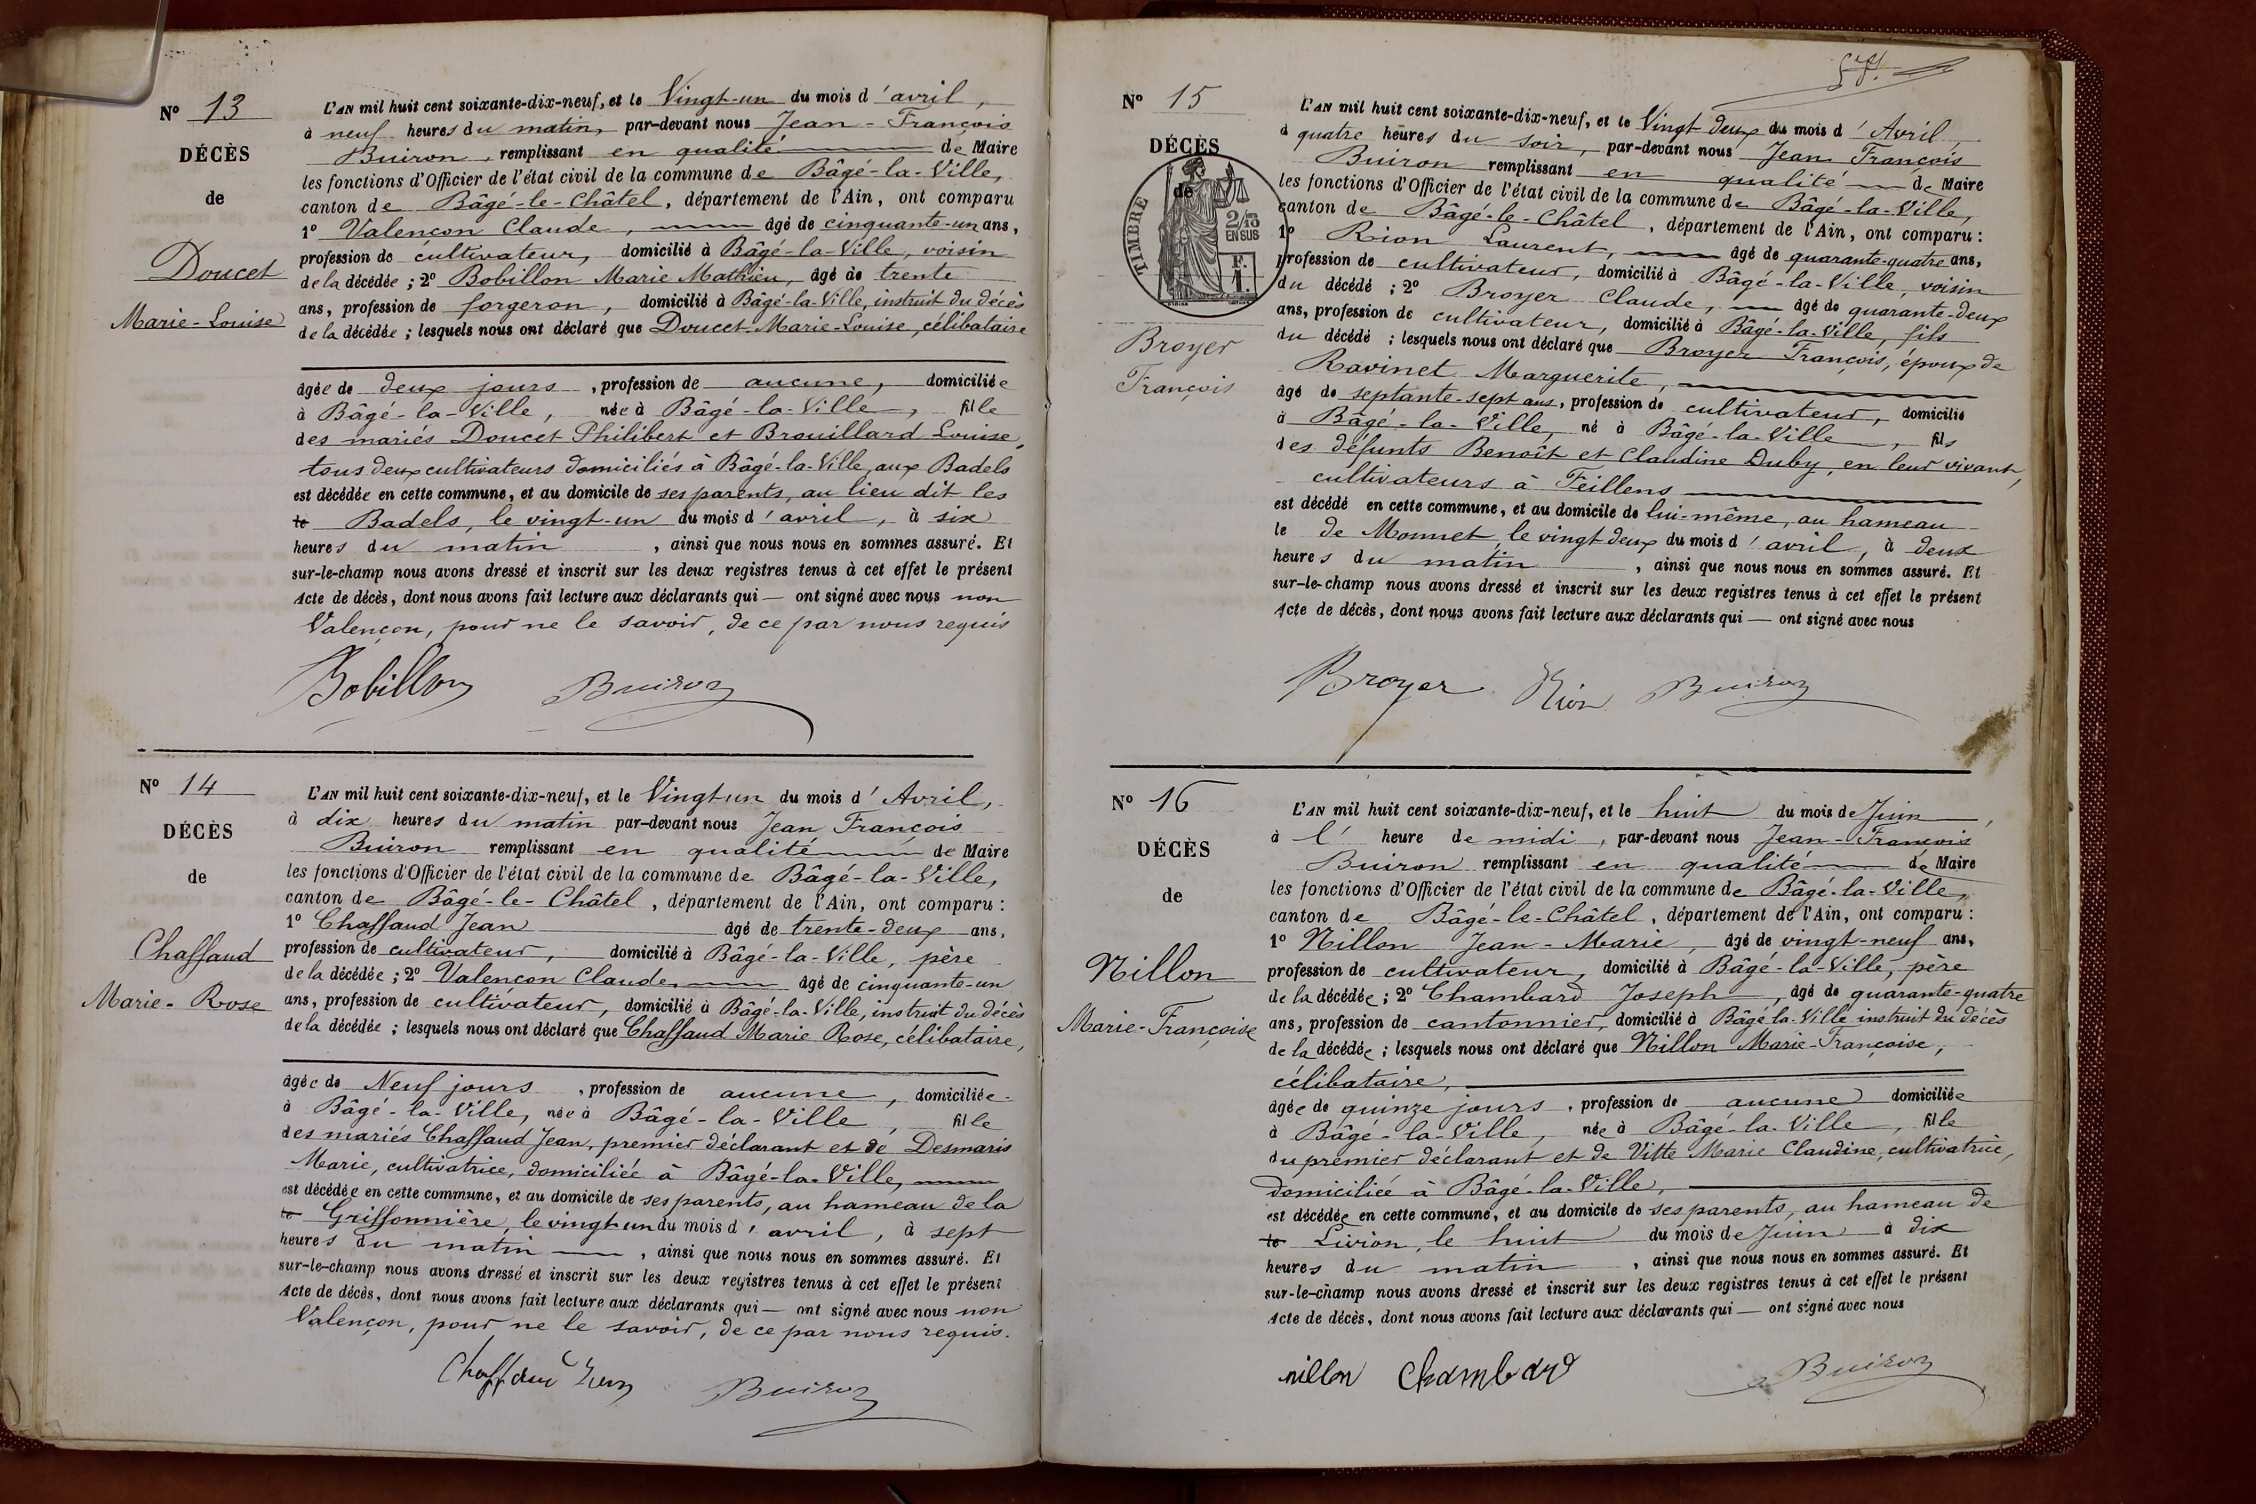 Nº 13
DÉCÈS
de
Doucet
Marie-Louise
L'AN mil huit cent soixante-dix-neuf, et le Vingt-un du mois d'avril,
à neuf heures du matin, par-devant nous Jean-François
Buiron, remplissant en qualité de Maire
les fonctions d'Officier de l'état civil de la commune de Bâgé-la-Ville,
canton de Bâgé-le-Châtel, département de l'Ain, ont comparu
1º Valençon Claude, âgé de cinquante-un ans,
profession de cultivateur, domicilié à Bâgé-la-Ville, voisin
de la décédée ; 2º Bobillon Marie Mathieu, âgé de trente
ans, profession de forgeron, domicilié à Bâgé-la-Ville, instruit du décès
de la décédée ; lesquels nous ont déclaré que Doucet Marie-Louise, célibataire
âgée de deux jours, profession de aucune, domiciliée
à Bâgé-la-Ville, née à Bâgé-la-Ville, fille
des mariés Doucet Philibert et Brouillard Louise,
tous deux cultivateurs domiciliés à Bâgé-la-Ville, aux Badels
est décédée en cette commune, et au domicile de ses parents, au lieu dit les
le Badels, le vingt-un du mois d'avril, à six
heures du matin, ainsi que nous nous en sommes assuré. Et
sur-le-champ nous avons dressé et inscrit sur les deux registres tenus à cet effet le présent
Acte de décès, dont nous avons fait lecture aux déclarants qui — ont signé avec nous non
Valençon, pour ne le savoir, de ce par nous requis
Bobillon Buiron
Nº 14
DÉCÈS
de
Chaffaud
Marie-Rose
L'AN mil huit cent soixante-dix-neuf, et le Vingt-un du mois d'Avril,
à dix heures du matin par-devant nous Jean François
Buiron remplissant en qualité de Maire
les fonctions d'Officier de l'état civil de la commune de Bâgé-la-Ville,
canton de Bâgé-le-Châtel, département de l'Ain, ont comparu :
1º Chaffaud Jean âgé de trente-deux ans,
profession de cultivateur, domicilié à Bâgé-la-Ville, père
de la décédée ; 2º Valençon Claude, âgé de cinquante-un
ans, profession de cultivateur, domicilié à Bâgé-la-Ville, instruit du décès
de la décédée ; lesquels nous ont déclaré que Chaffaud Marie Rose, célibataire,
âgée de Neuf jours, profession de aucune, domiciliée
à Bâgé-la-Ville, née à Bâgé-la-Ville, fille
des mariés Chaffaud Jean, premier déclarant et de Desmaris
Marie, cultivatrice, domiciliée à Bâgé-la-Ville,
est décédée en cette commune, et au domicile de ses parents, au hameau de la
le Griffonnière, le vingt un du mois d'avril, à sept
heures du matin, ainsi que nous nous en sommes assuré. Et
sur-le-champ nous avons dressé et inscrit sur les deux registres tenus à cet effet le présent
Acte de décès, dont nous avons fait lecture aux déclarants qui — ont signé avec nous non
Valençon, pour ne le savoir, de ce par nous requis.
Chaffaud Jean Buiron
Nº 15
DÉCÈS
de
TIMBRE
2/10 EN SUS
F. 1.
Broyer
François
L'AN mil huit cent soixante-dix-neuf, et le Vingt deux du mois d'Avril,
à quatre heures du soir, par-devant nous Jean François
Buiron remplissant en qualité de Maire
les fonctions d'Officier de l'état civil de la commune de Bâgé-la-Ville,
canton de Bâgé-le-Châtel, département de l'Ain, ont comparu :
1º Rion Laurent, âgé de quarante-quatre ans,
profession de cultivateur, domicilié à Bâgé-la-Ville, voisin
du décédé ; 2º Broyer Claude, âgé de quarante-deux
ans, profession de cultivateur, domicilié à Bâgé-la-Ville, fils
du décédé ; lesquels nous ont déclaré que Broyer François, époux de
Ravinet Marguerite,
âgé de septante-sept ans, profession de cultivateur, domicilié
à Bâgé-la-Ville, né à Bâgé-la-Ville, fils
des défunts Benoît et Claudine Duby, en leur vivant,
cultivateurs à Feillens
est décédé en cette commune, et au domicile de lui-même, au hameau
le de Monnet, le vingt deux du mois d'avril, à deux
heures du matin, ainsi que nous nous en sommes assuré. Et
sur-le-champ nous avons dressé et inscrit sur les deux registres tenus à cet effet le présent
Acte de décès, dont nous avons fait lecture aux déclarants qui — ont signé avec nous
Broyer Rion Buiron
Nº 16
DÉCÈS
de
Nillon
Marie-Françoise
L'AN mil huit cent soixante-dix-neuf, et le huit du mois de Juin,
à l' heure de midi, par-devant nous Jean-François
Buiron remplissant en qualité de Maire
les fonctions d'Officier de l'état civil de la commune de Bâgé-la-Ville,
canton de Bâgé-le-Châtel, département de l'Ain, ont comparu :
1º Nillon Jean-Marie, âgé de vingt-neuf ans,
profession de cultivateur, domicilié à Bâgé-la-Ville, père
de la décédée ; 2º Chambard Joseph, âgé de quarante-quatre
ans, profession de cantonnier, domicilié à Bâgé la-Ville instruit du décès
de la décédée ; lesquels nous ont déclaré que Nillon Marie-Françoise,
célibataire,
âgée de quinze jours, profession de aucune domiciliée
à Bâgé-la-Ville, née à Bâgé-la-Ville, fille
du premier déclarant et de Vitte Marie Claudine, cultivatrice,
domiciliée à Bâgé-la-Ville,
est décédée en cette commune, et au domicile de ses parents, au hameau de
le Livion, le huit du mois de Juin à dix
heures du matin, ainsi que nous nous en sommes assuré. Et
sur-le-champ nous avons dressé et inscrit sur les deux registres tenus à cet effet le présent
Acte de décès, dont nous avons fait lecture aux déclarants qui — ont signé avec nous
nillon Chambard Buiron